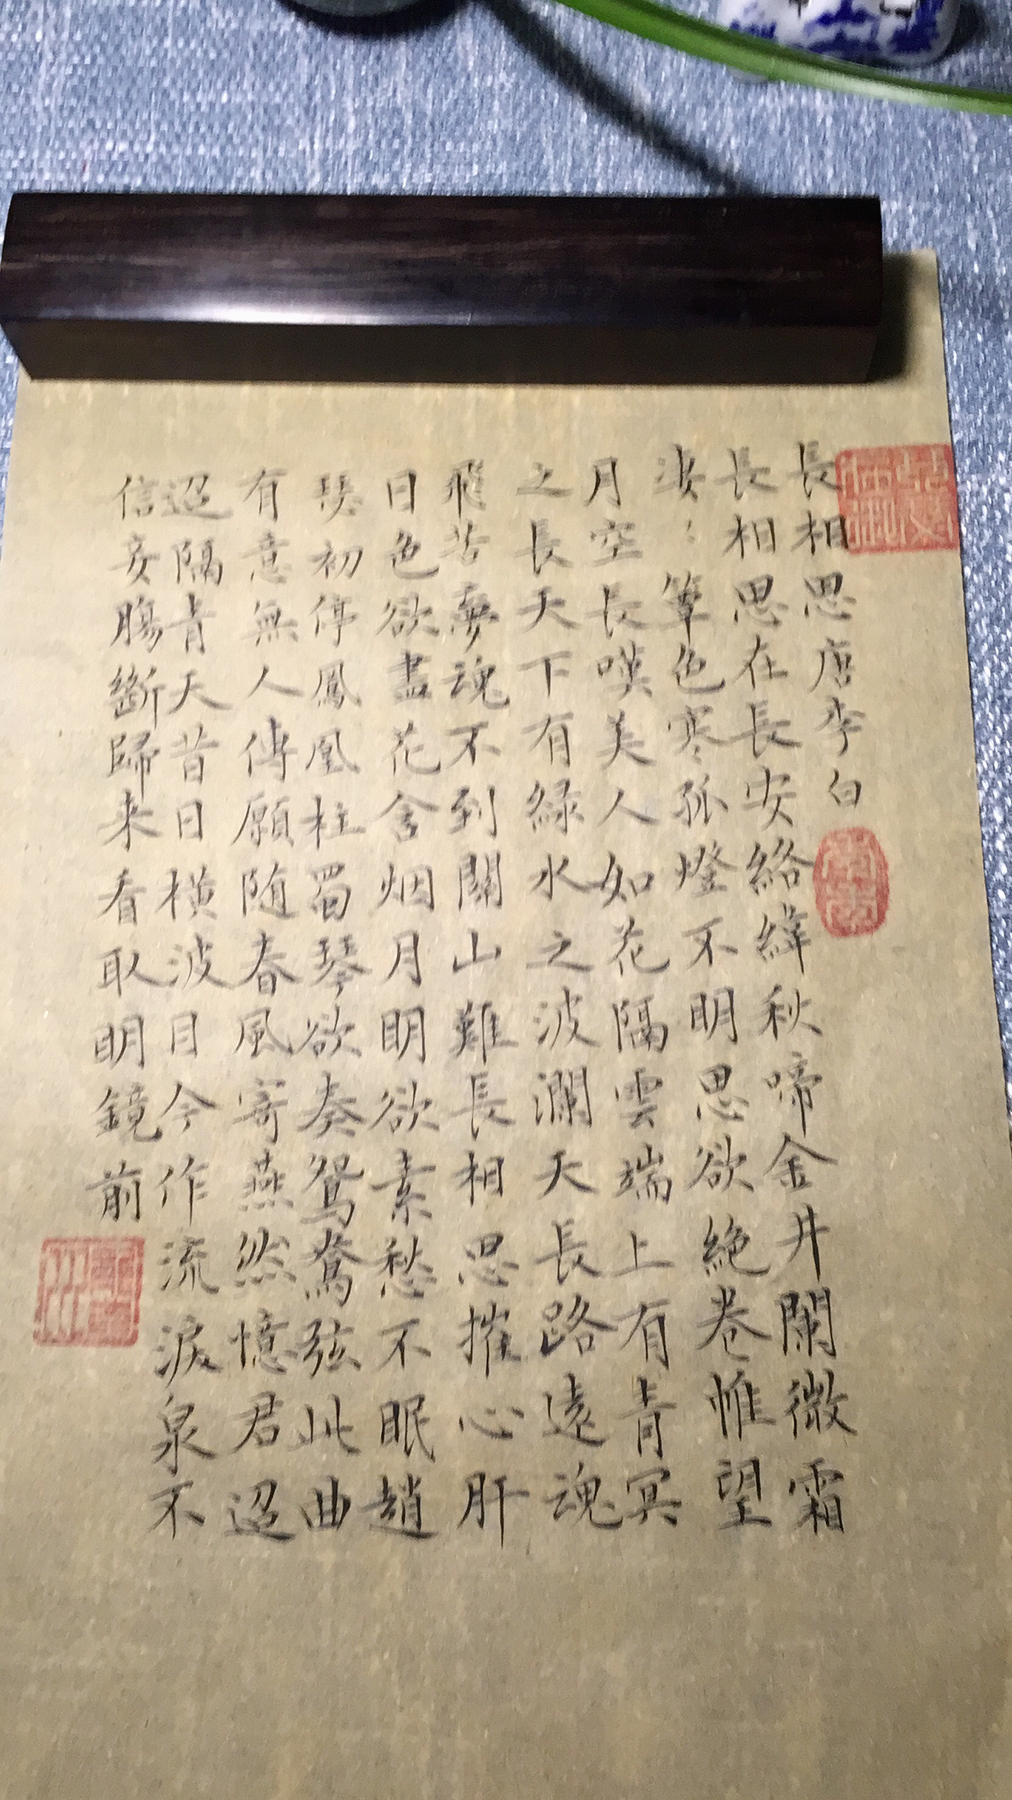 長相思唐李白
長相思在長安絡緯秋啼金井闌微霜
淒〻簟色寒孤燈不明思欲絕卷帷望
月空長嘆美人如花隔雲端上有青冥
之長天下有綠水之波瀾天長路遠魂
飛苦夢魂不到關山難長相思摧心肝
日色欲盡花含烟月明欲素愁不眠趙
瑟初停鳳凰柱蜀琴欲奏鴛鴦弦此曲
有意無人傳願随春風寄燕然憶君迢
迢隔青天昔日横波目今作流淚泉不
信妾腸斷歸来看取明鏡前